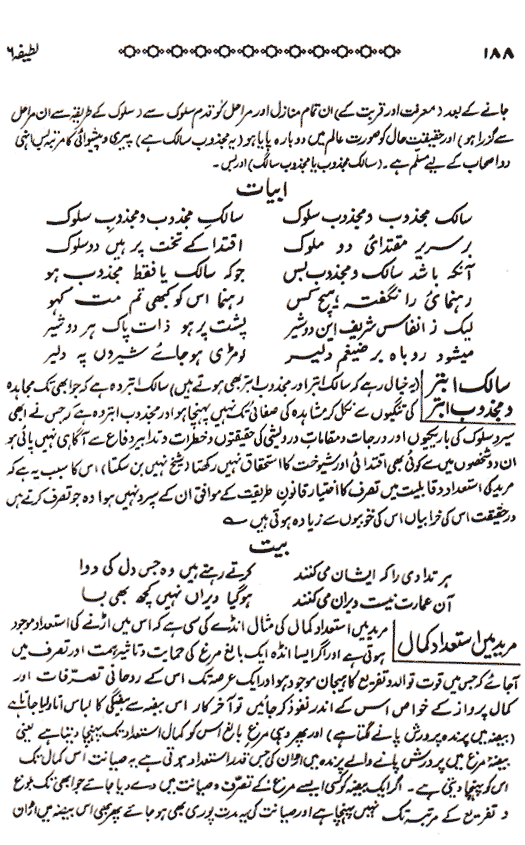 ۱۸۸ لطیفہ ۶
جانے کے بعد (معرفت اور قربت کے) ان تمام منازل اور مراحل کو قدم سلوک سے (سلوک کے طریقہ سے ان مراحل
سے گزرا ہو) اور حقیقت حال کو صورت عالم میں دوبارہ پایا ہو (یہ مجذوب سالک ہے) پیری و پیشوائی کا مرتبہ بس انہی
دو اصحاب کے لیے مسلم ہے۔ (سالک مجذوب یا مجذوب سالک) اور بس۔
ابیات
سالک مجذوب و مجذوب سلوک سالکِ مجذوب و مجذوبِ سلوک
بر سریر مقتدائی دو ملوک اقتدا کے تخت پر ہیں دو ملوک
آنکہ باشد سالک و مجذوب بس جو کہ سالک یا فقط مجذوب ہو
رہنمائی را نگفتہ ہیچ کس رہنما اس کو کبھی تم مت کہو
لیک ز انفاس شریف این دو شیر پشت پر ہو ذات پاک ہر دو شیر
میشود روباہ بر ضیغم دلیر لومڑی ہو جائے شیروں پہ دلیر
سالک ابتر (یہ خیال رہے کہ سالک ابتر اور مجذوب ابتر بھی ہوتے ہیں) سالک ابتر وہ ہے کہ جو ابھی تک مجاہدہ
و مجذوب ابتر کی تنگیوں سے نکل کر مشاہدہ کی صفائی تک نہیں پہنچا ہو اور مجذوب ابتر وہ ہے جس نے ابھی
سیر و سلوک کی باریکیوں اور درجات و مقامات درویشی کی حقیقتوں و خطرات و تدابیر دفاع سے آگاہی نہیں پائی ہو
ان دو شخصوں میں سے کوئی بھی اقتدائی اور شیوخت کا استحقاق نہیں رکھتا (شیخ نہیں بن سکتا) اس کا سبب یہ ہے کہ
مرید کی استعداد و قابلیت میں تصرف کا اختیار قانون طریقت کے موافق ان کے سپرد نہیں ہوا وہ جو تصرف کرتے ہیں
درحقیقت اس کی خرابیاں اس کی خوبیوں سے زیادہ ہوتی ہیں
بیت
ہر تداوی را کہ ایشان می کنند کرتے رہتے ہیں وہ جس دل کی دوا
آن عمارت نیست ویران می کنند ہو گیا ویراں نہیں کچھ بھی بسا
مرید میں استعداد کمال مرید میں استعداد کمال کی مثال انڈے کی سی ہے کہ اس میں اڑنے کی استعداد موجود
ہوتی ہے اور اگر ایسا انڈہ ایک بالغ مرغ کی حمایت و تاثیر ہمت اور تصرف میں
آجائے کہ جس میں قوت توالد و تفریع کا ہیجان موجود ہو اور ایک عرصہ تک اس کے روحانی تصرفات اور
کمال پرواز کے خواص اس کے اندر نفوذ کر جائیں تو آخر کار اس بیضہ سے بیضگی کا لباس اتار لیا جاتا ہے
(بیضہ میں پرندہ پرورش پانے لگتا ہے) اور پھر وہی مرغ بالغ اس کو کمال استعداد تک پہنچا دیتا ہے یعنی
بیضہ مرغ میں پرورش پانے والے پرندہ میں اڑان کی جس قدر استعداد ہوتی ہے یہ صیانت اس کمال تک
اس کو پہنچا دیتی ہے۔ اگر ایک بیضہ کو کسی ایسے مرغ کے تصرف و صیانت میں دے دیا جائے جو ابھی تک بلوغ
و تفریع کے مرتبہ تک نہیں پہنچا ہے اور صیانت کی یہ مدت پوری بھی ہو جائے پھر بھی اس بیضہ میں اڑان